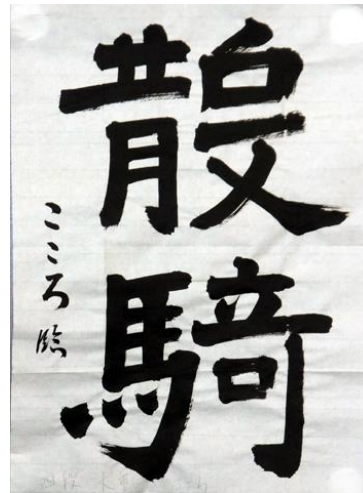 散騎
こころ臨